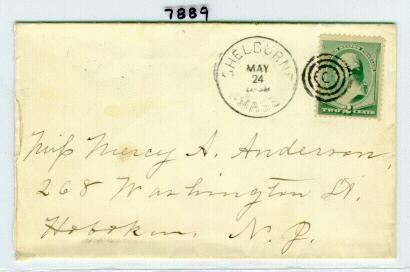 7889
SHELBURNE
MAY
24
MASS
TWO CENTS
Miss Mercy A. Anderson,
268 Washington St.
Hoboken, N. J.